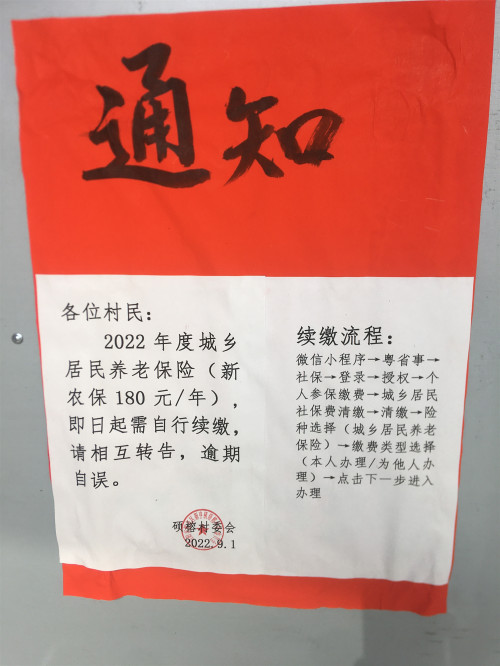 通知
各位村民：
2022 年度城乡
居民养老保险（新
农保 180 元/年），
即日起需自行续缴，
请相互转告，逾期
自误。
硕榕村委会
2022.9.1
续缴流程：
微信小程序→粤省事→
社保→登录→授权→个
人参保缴费→城乡居民
社保费清缴→清缴→险
种选择（城乡居民养老
保险）→缴费类型选择
（本人办理/为他人办
理）→点击下一步进入
办理